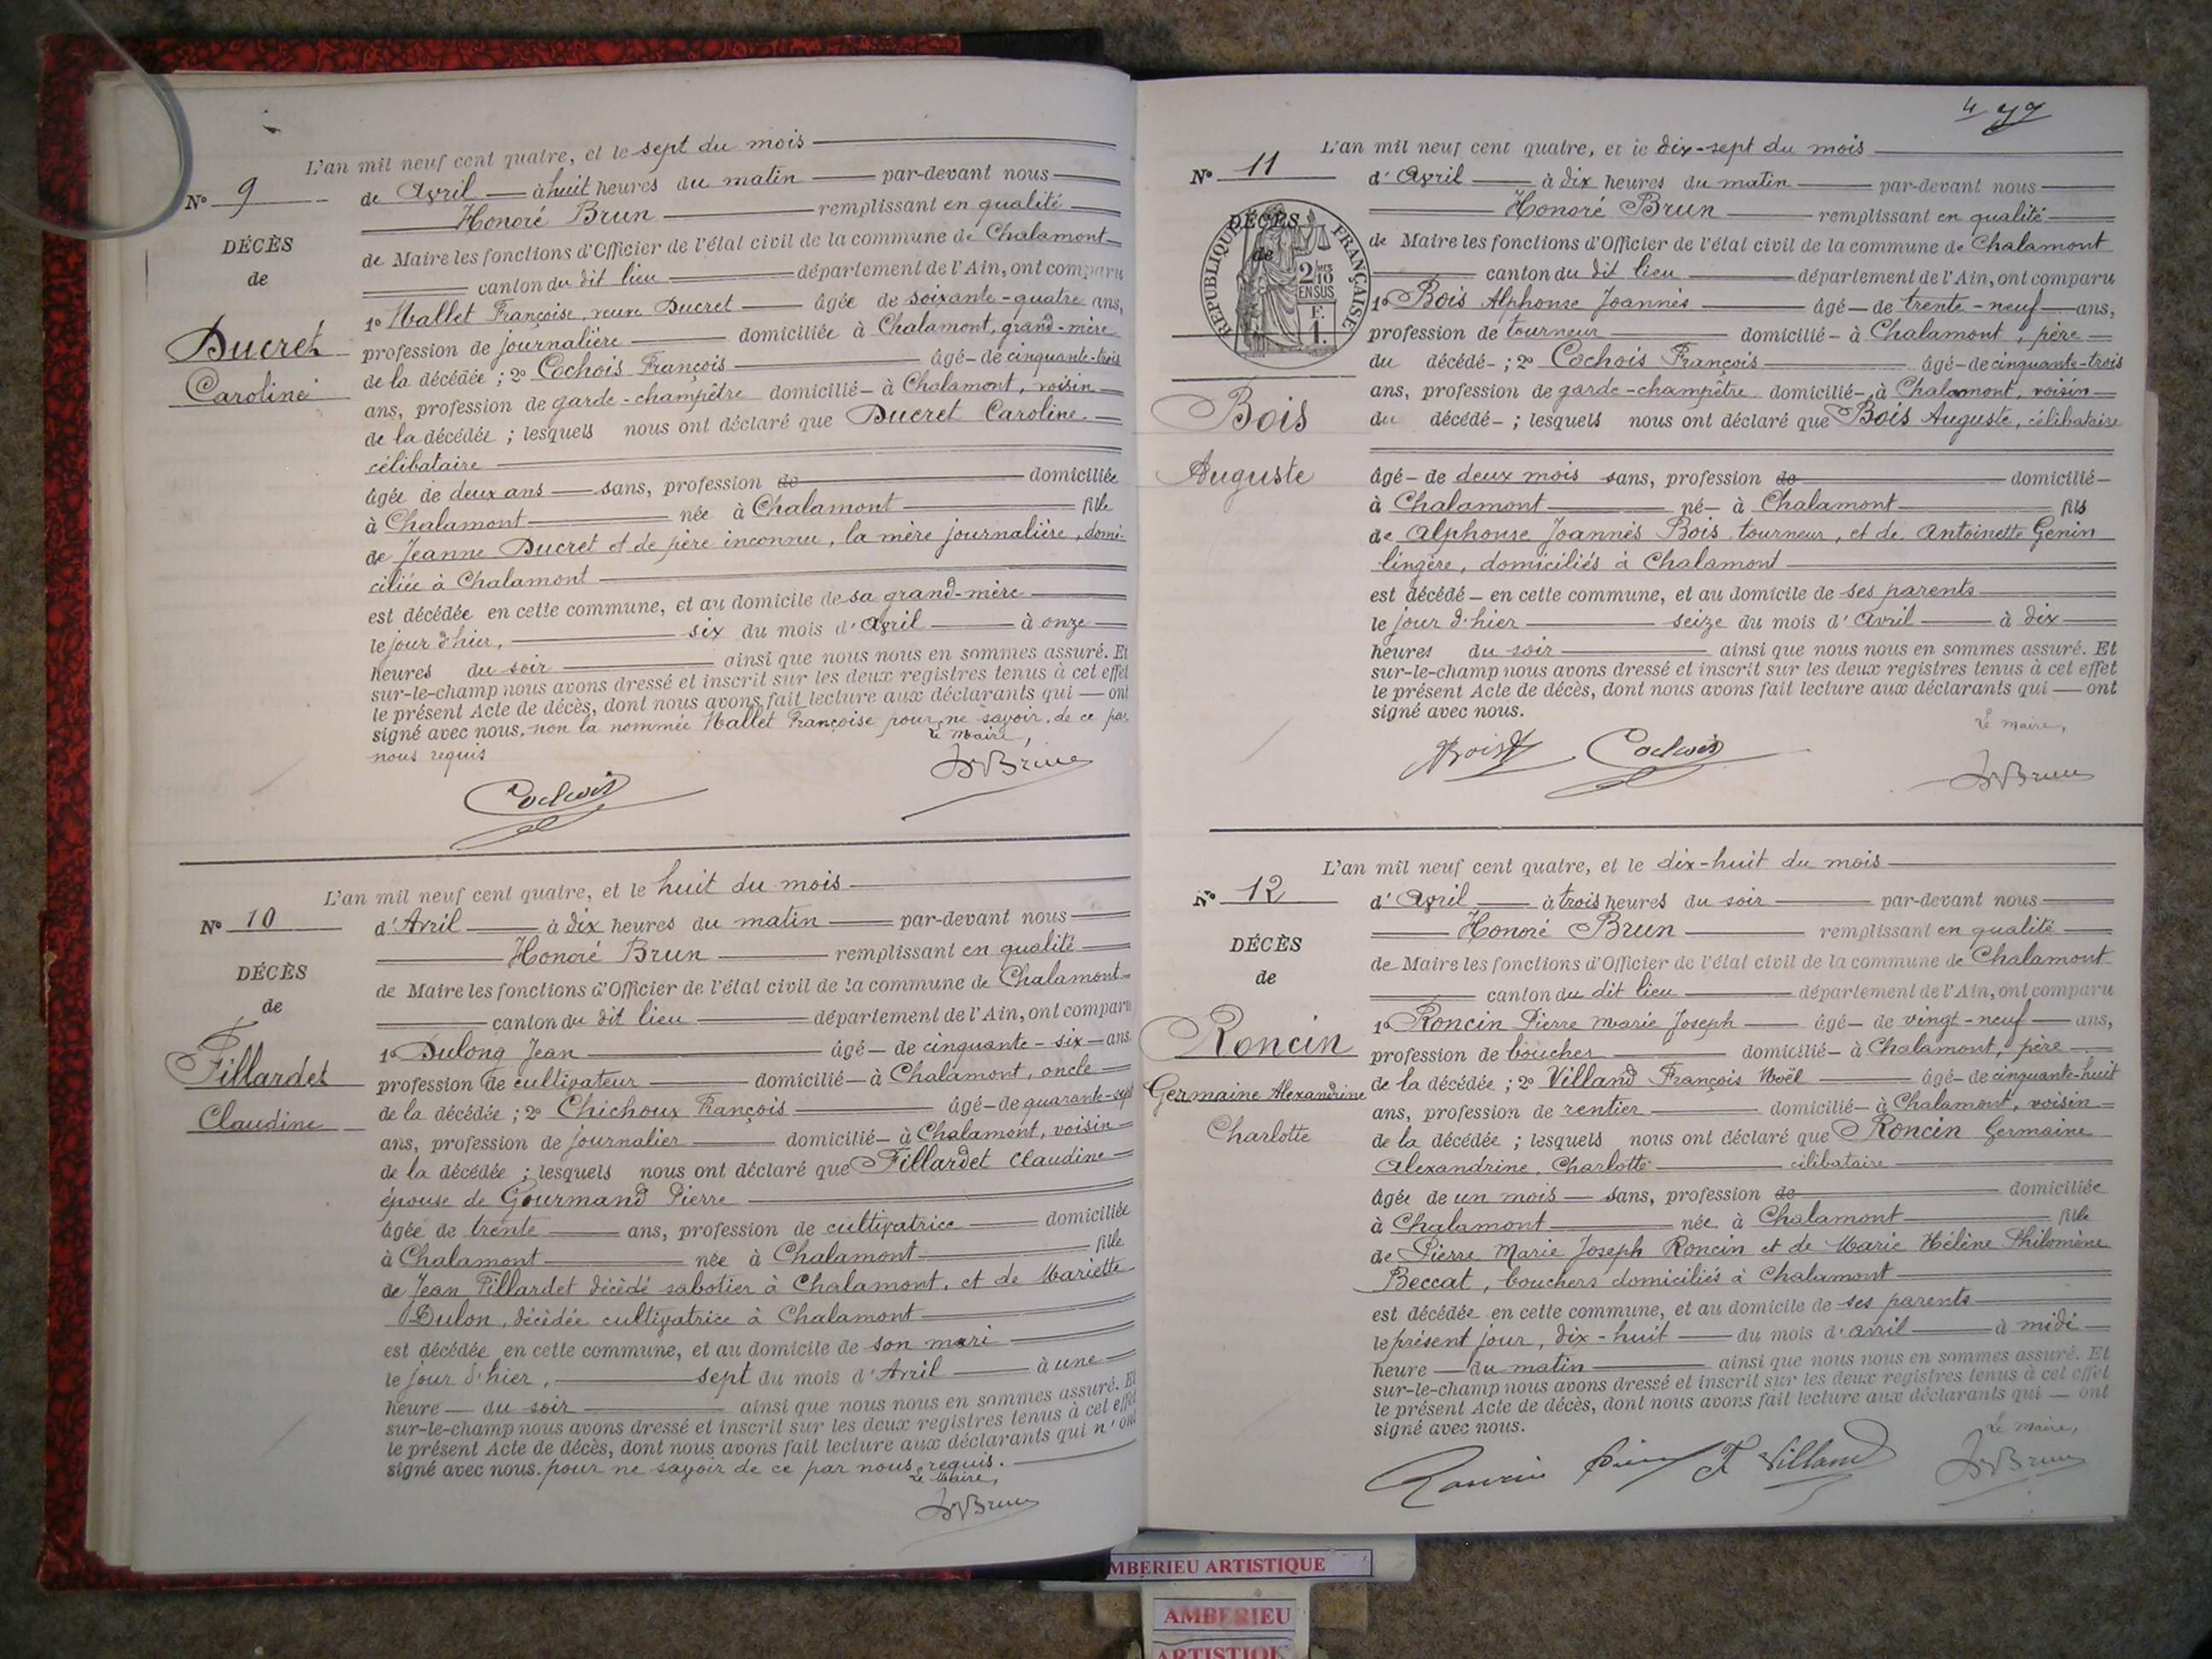 L'an mil neuf cent quatre, et le sept du mois
N° 9
de Avril à huit heures du matin par-devant nous
Honoré Brun remplissant en qualité
DÉCÈS
de Maire les fonctions d'Officier de l'état civil de la commune de Chalamont
de
canton du dit lieu département de l'Ain, ont comparu
1° Mallet Françoise, veuve Ducret âgée de soixante-quatre ans,
Ducret
profession de journalière domiciliée à Chalamont, grand-mère
de la décédée ; 2° Cochois François âgé de cinquante-trois
Caroline
ans, profession de garde-champêtre domicilié à Chalamont, voisin
de la décédée ; lesquels nous ont déclaré que Ducret Caroline
célibataire
âgée de deux ans sans, profession de domiciliée
à Chalamont née à Chalamont fille
de Jeanne Ducret et de père inconnu, la mère journalière, domi-
ciliée à Chalamont
est décédée en cette commune, et au domicile de sa grand-mère
le jour d'hier, six du mois d'Avril à onze
heures du soir ainsi que nous nous en sommes assuré. Et
sur-le-champ nous avons dressé et inscrit sur les deux registres tenus à cet effet
le présent Acte de décès, dont nous avons fait lecture aux déclarants qui ont
signé avec nous, non la nommée Mallet Françoise pour ne savoir, de ce par
nous requis
Le Maire,
Cochois
H Brun
L'an mil neuf cent quatre, et le huit du mois
N° 10
d'Avril à dix heures du matin par-devant nous
Honoré Brun remplissant en qualité
DÉCÈS
de Maire les fonctions d'Officier de l'état civil de la commune de Chalamont
de
canton du dit lieu département de l'Ain, ont comparu
1° Dulong Jean âgé de cinquante-six ans
Fillardet
profession de cultivateur domicilié à Chalamont, oncle
de la décédée ; 2° Chichoux François âgé de quarante-sept
Claudine
ans, profession de journalier domicilié à Chalamont, voisin
de la décédée ; lesquels nous ont déclaré que Fillardet Claudine
épouse de Gourmand Pierre
âgée de trente ans, profession de cultivatrice domiciliée
à Chalamont née à Chalamont fille
de Jean Fillardet décédé sabotier à Chalamont, et de Mariette
Dulon, décédée cultivatrice à Chalamont
est décédée en cette commune, et au domicile de son mari
le jour d'hier, sept du mois d'Avril à une
heure du soir ainsi que nous nous en sommes assuré. Et
sur-le-champ nous avons dressé et inscrit sur les deux registres tenus à cet effet
le présent Acte de décès, dont nous avons fait lecture aux déclarants qui n'ont
signé avec nous, pour ne savoir de ce par nous requis.
Le Maire,
H Brun
4
L'an mil neuf cent quatre, et le dix-sept du mois
N° 11
d'Avril à dix heures du matin par-devant nous
Honoré Brun remplissant en qualité
DÉCÈS
de
RÉPUBLIQUE FRANÇAISE
2/10 EN SUS
F. 1.
de Maire les fonctions d'Officier de l'état civil de la commune de Chalamont
canton du dit lieu département de l'Ain, ont comparu
1° Bois Alphonse Joannès âgé de trente-neuf ans,
profession de tourneur domicilié à Chalamont, père
du décédé ; 2° Cochois François âgé de cinquante-trois
ans, profession de garde-champêtre domicilié à Chalamont, voisin
Bois
du décédé ; lesquels nous ont déclaré que Bois Auguste, célibataire
Auguste
âgé de deux mois sans, profession de domicilié
à Chalamont né à Chalamont fils
de Alphonse Joannès Bois, tourneur, et de Antoinette Genin
lingère, domiciliés à Chalamont
est décédé en cette commune, et au domicile de ses parents
le jour d'hier seize du mois d'Avril à dix
heures du soir ainsi que nous nous en sommes assuré. Et
sur-le-champ nous avons dressé et inscrit sur les deux registres tenus à cet effet
le présent Acte de décès, dont nous avons fait lecture aux déclarants qui ont
signé avec nous.
Le Maire,
Bois Cochois
H Brun
L'an mil neuf cent quatre, et le dix-huit du mois
N° 12
d'Avril à trois heures du soir par-devant nous
Honoré Brun remplissant en qualité
DÉCÈS
de Maire les fonctions d'Officier de l'état civil de la commune de Chalamont
de
canton du dit lieu département de l'Ain, ont comparu
1° Roncin Pierre Marie Joseph âgé de vingt-neuf ans,
Roncin
profession de boucher domicilié à Chalamont, père
Germaine Alexandrine
de la décédée ; 2° Villand François Noël âgé de cinquante-huit
ans, profession de rentier domicilié à Chalamont, voisin
Charlotte
de la décédée ; lesquels nous ont déclaré que Roncin Germaine
Alexandrine, Charlotte célibataire
âgée de un mois sans, profession de domiciliée
à Chalamont née à Chalamont fille
de Pierre Marie Joseph Roncin et de Marie Hélène Philomène
Beccat, bouchers domiciliés à Chalamont
est décédée en cette commune, et au domicile de ses parents
le présent jour, dix-huit du mois d'avril à midi
heure du matin ainsi que nous nous en sommes assuré. Et
sur-le-champ nous avons dressé et inscrit sur les deux registres tenus à cet effet
le présent Acte de décès, dont nous avons fait lecture aux déclarants qui ont
signé avec nous.
Le Maire,
Roncin Pierre F Villand
H Brun
AMBERIEU ARTISTIQUE
AMBERIEU
ARTISTIQUE